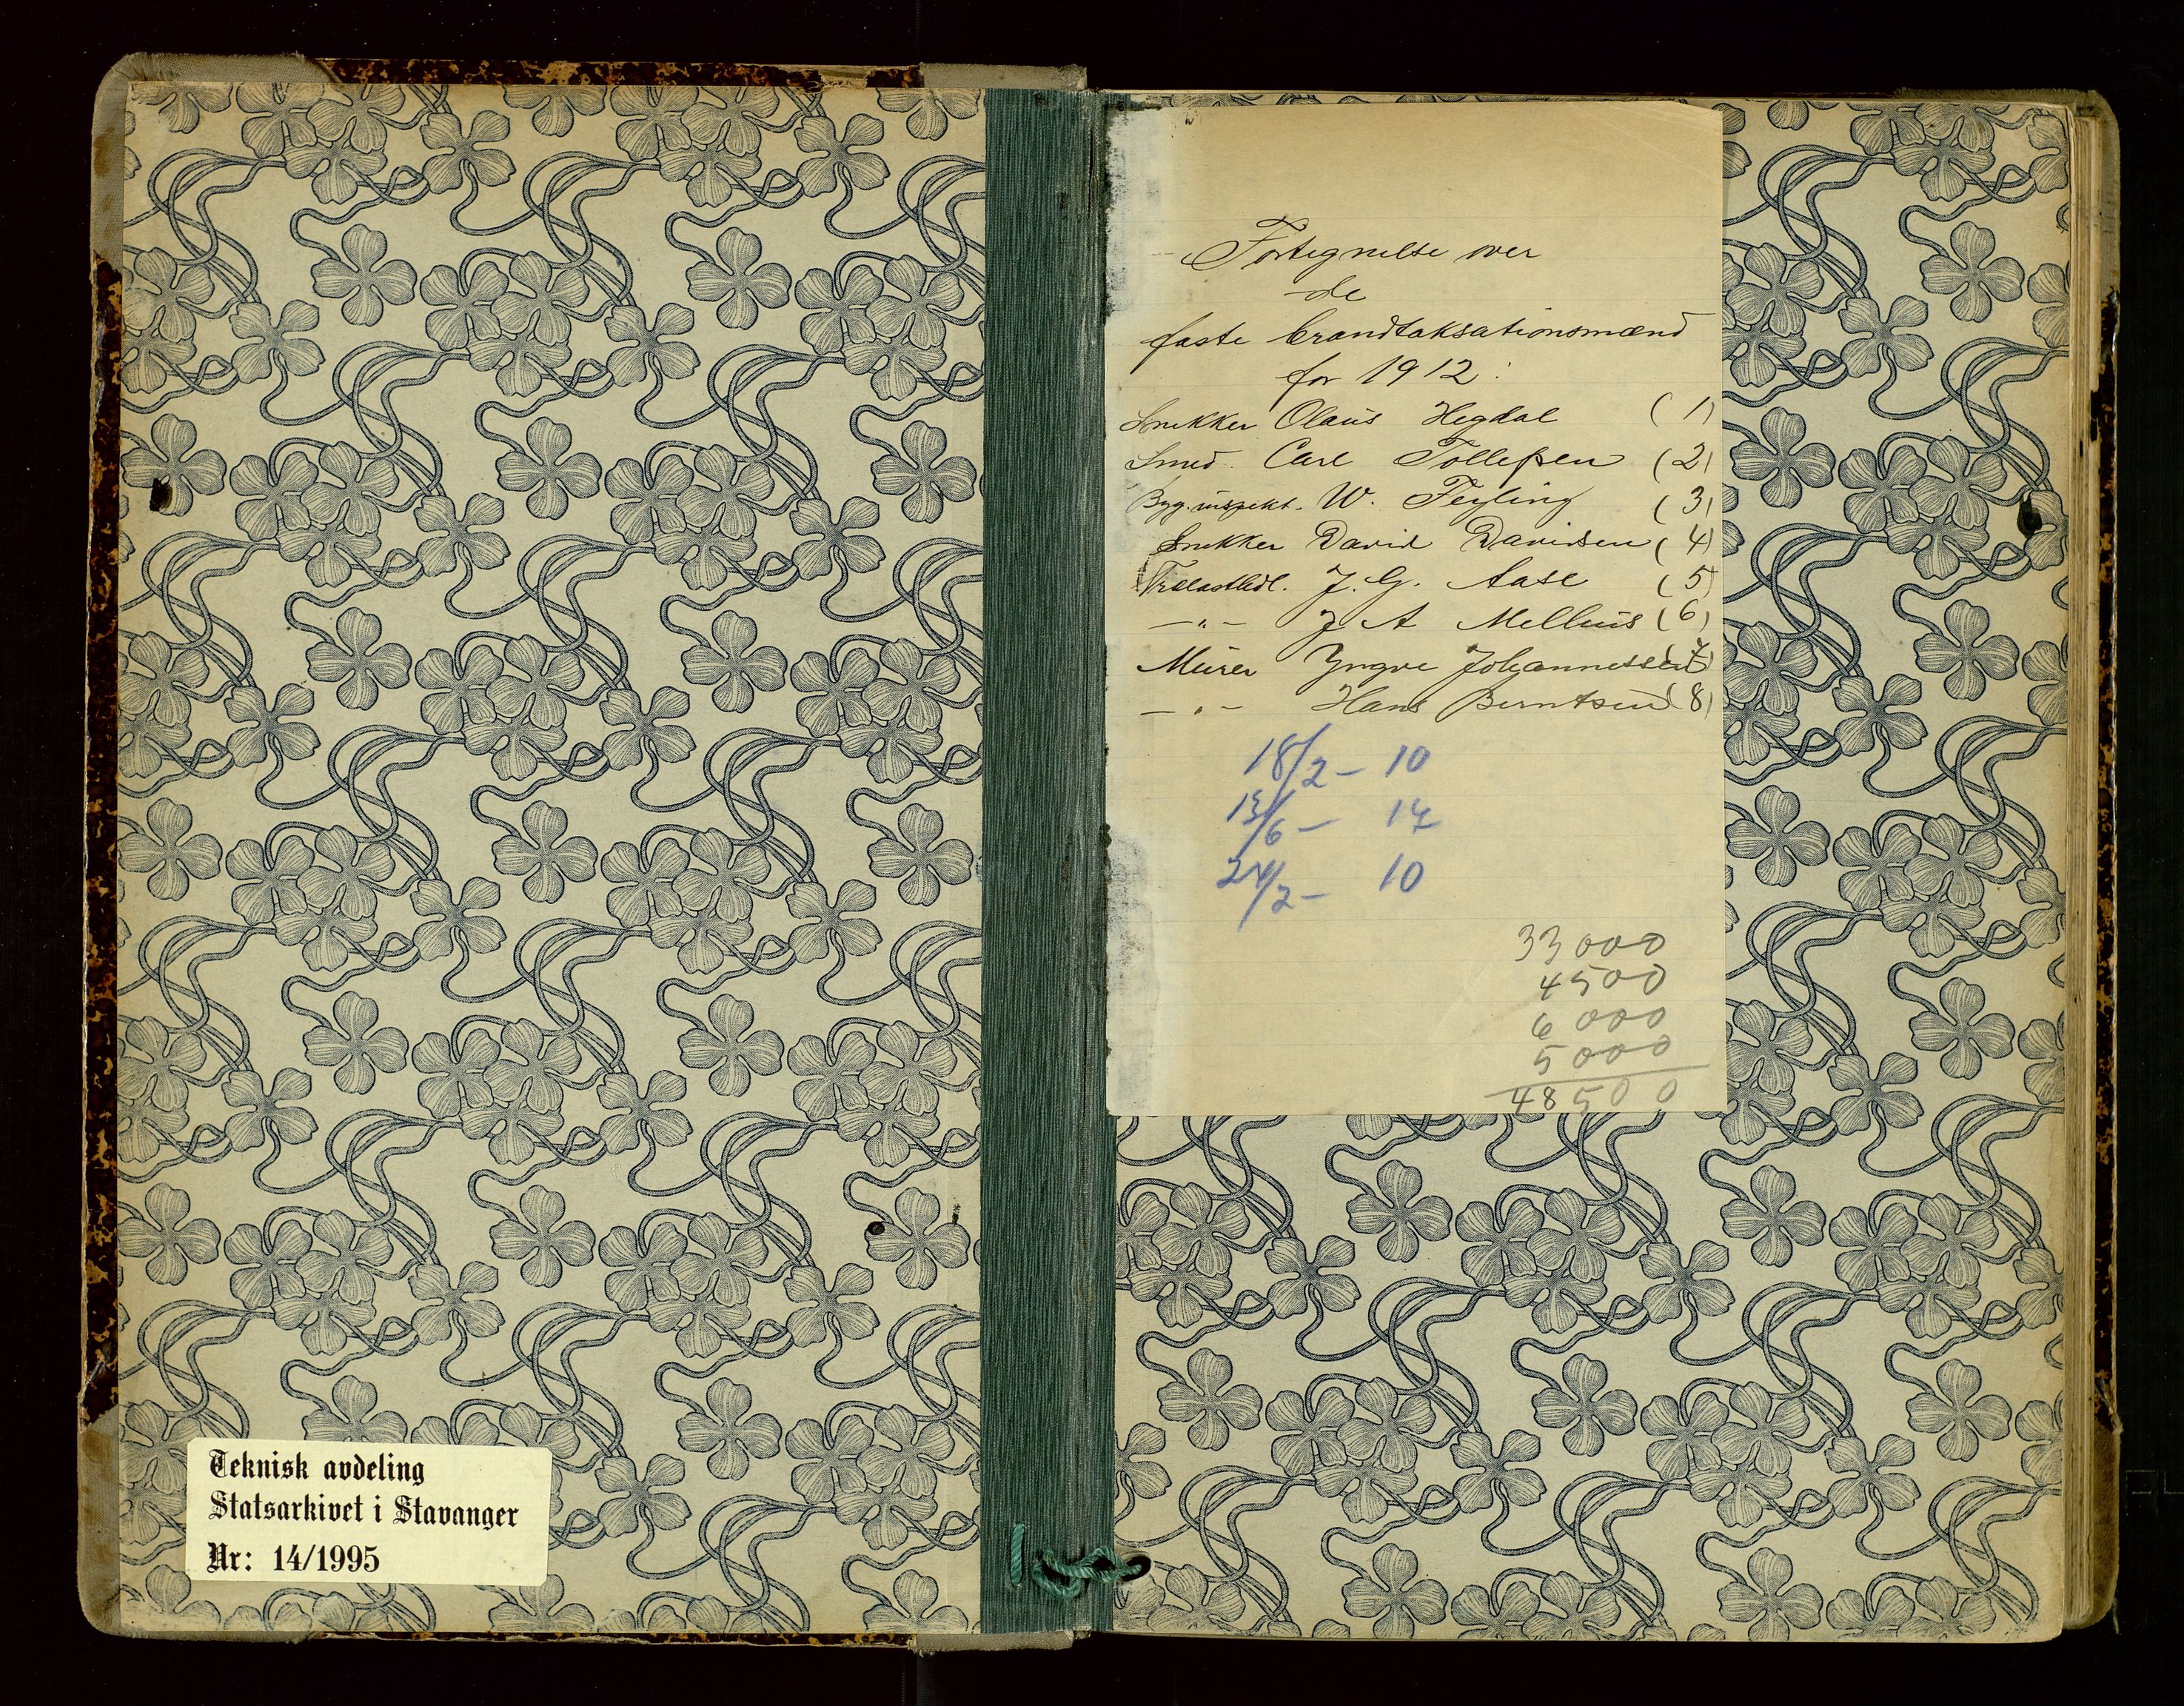 Teknisk avdeling
Statsarkivet i Stavanger
Nr: 14/1995
Fortegnelse over
de
faste brandtaksationsmænd
for 1912:
Snekker Olaus Hegdal (1)
Smed. Carl Tollefsen (2)
Byg.inspekt. W. Feyling (3)
Snekker David Davidsen (4)
Trælasthdl. J. G. Aase (5)
—"— J A Mellius (6)
Murer Yngve Johannessen (7)
—"— Hans Berntsen (8)
18/2 – 10
/6 – 14
24/2 – 10
33000
4500
6000
5000
48500